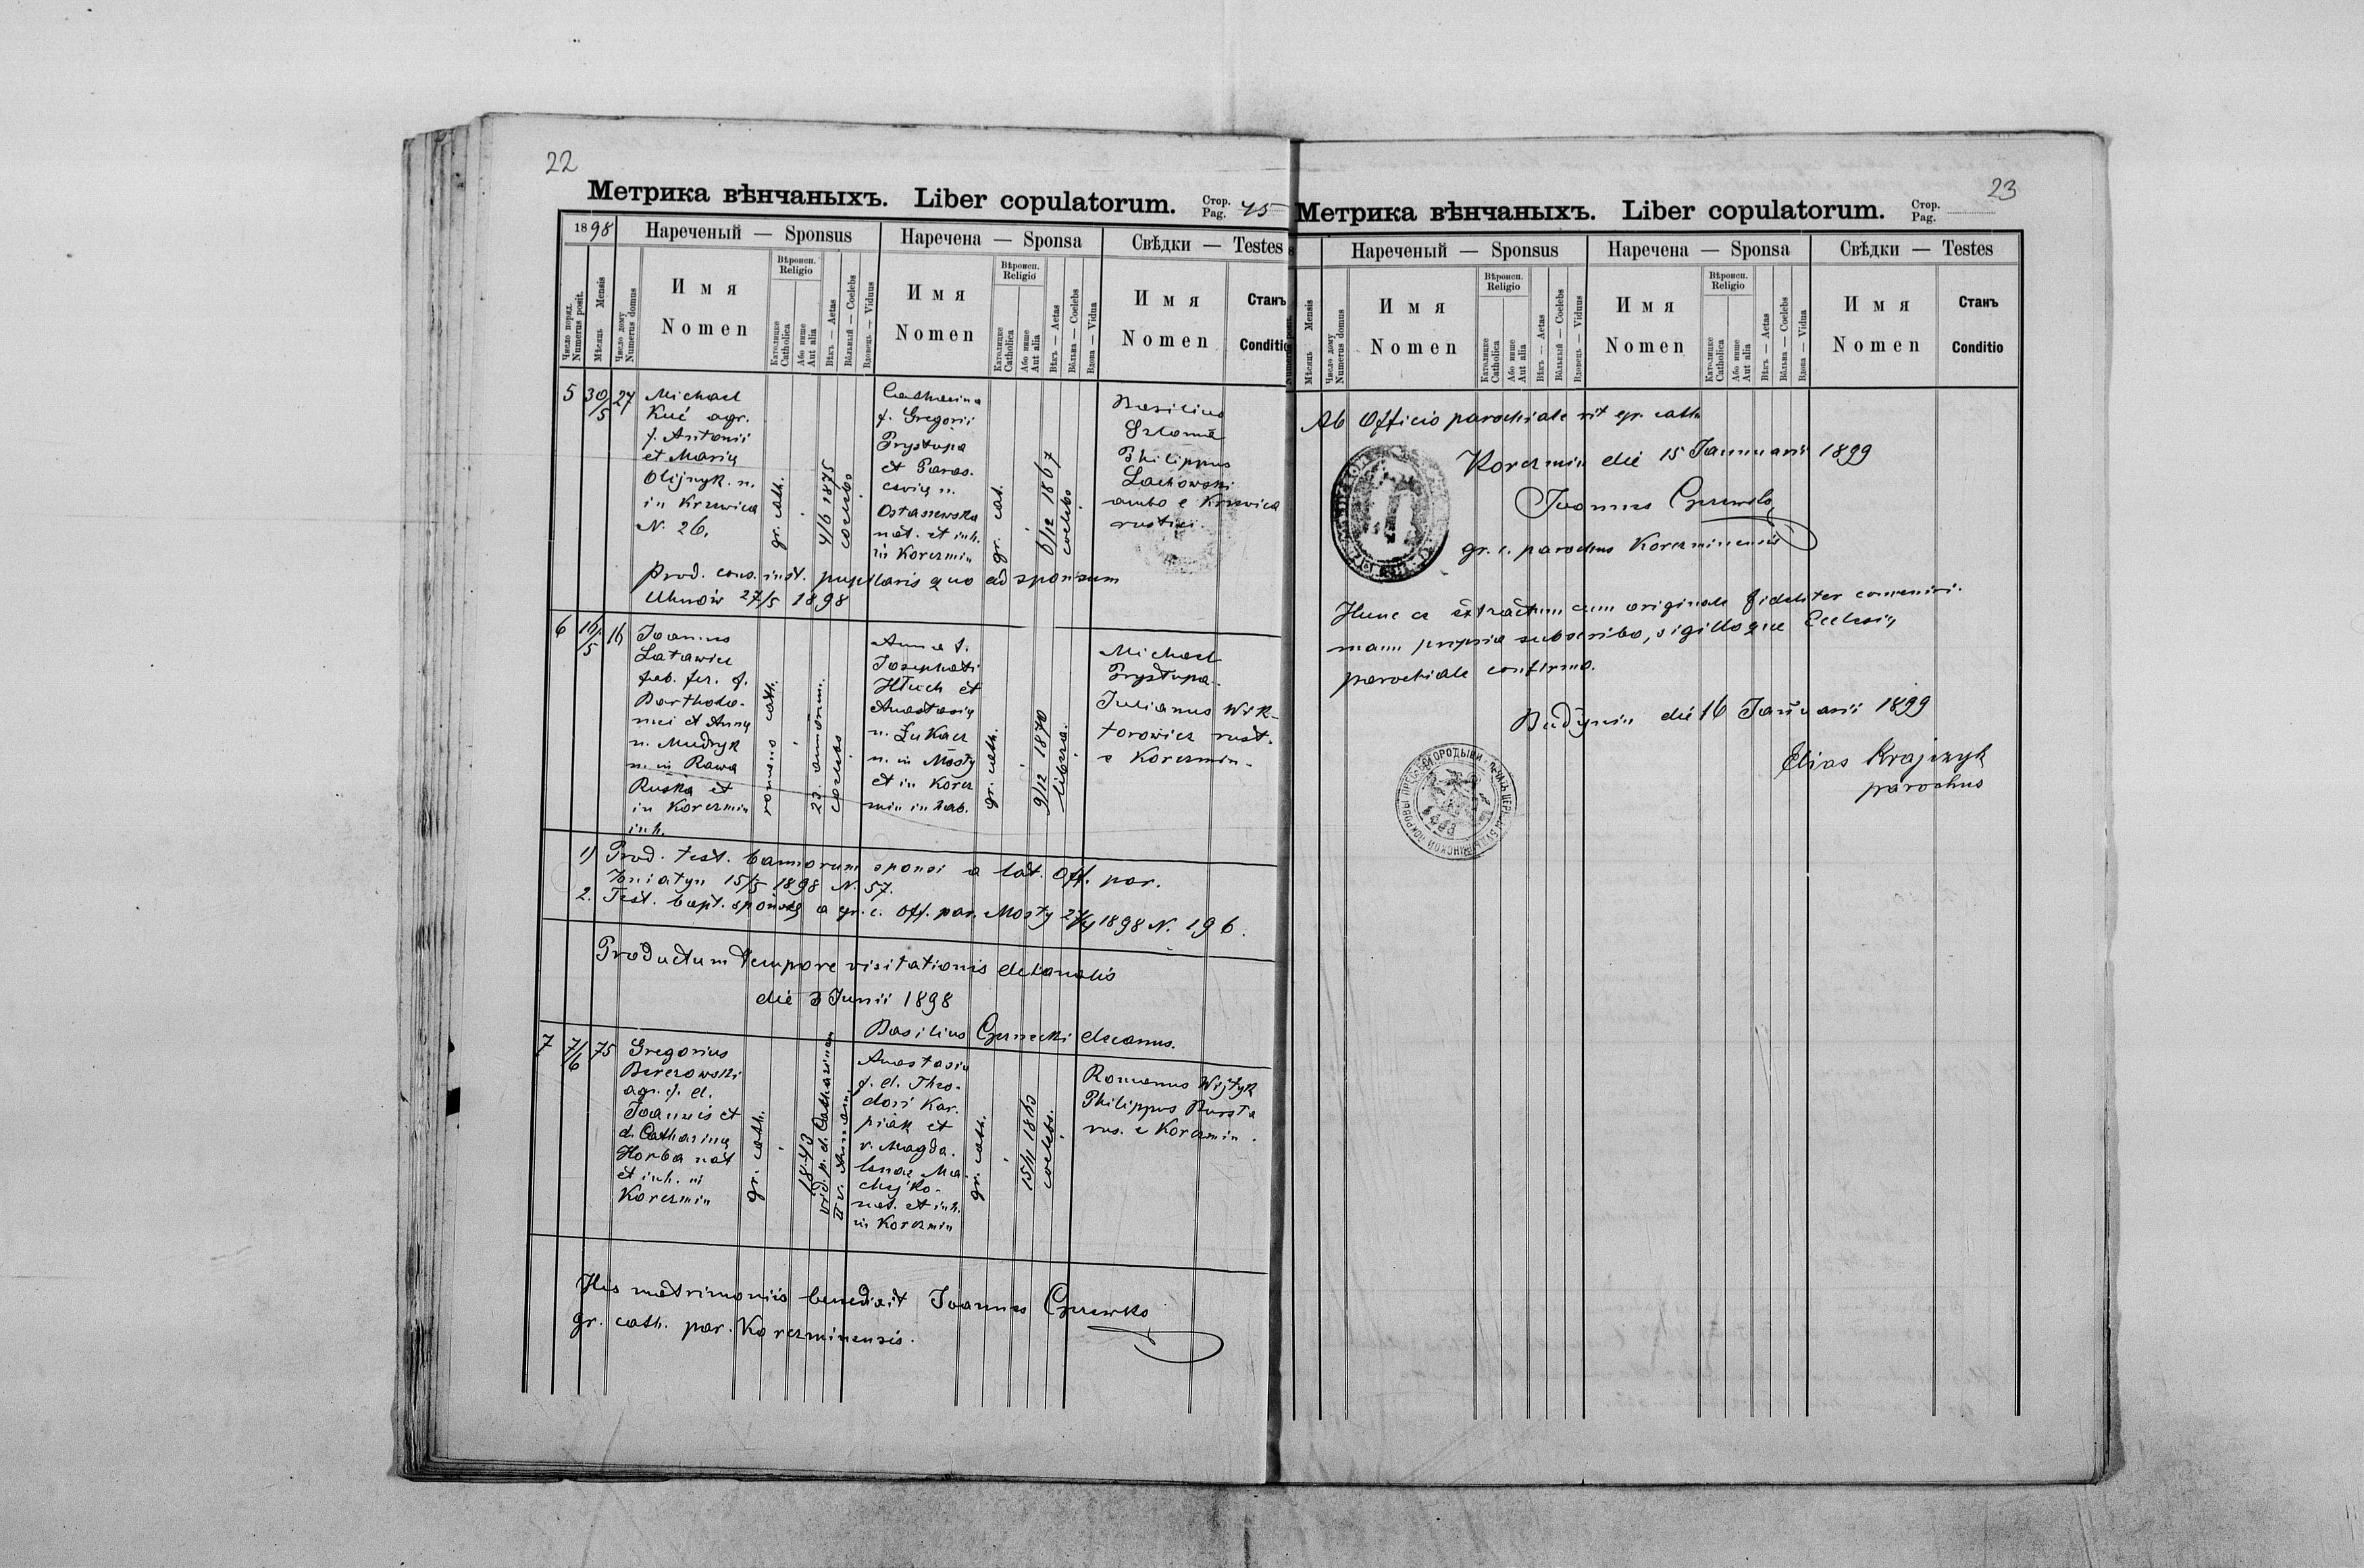 22
Метрика вѣнчаныхъ. Liber copulatorum.
Стор.
Pag. 45
1898
Нареченый — Sponsus
Наречена — Sponsa
Свѣдки — Testes
Число поряд.
Numerus posit.
Мѣсяць Mensis
Число дому
Numerus domus
Имя
Nomen
Вѣроисп.
Religio
Католицке
Catholica
Або инше
Aut alia
Вѣкъ — Aetas
Вôльный — Coelebs
Вдовець — Viduus
Имя
Nomen
Вѣроисп.
Religio
Католицке
Catholica
Або инше
Aut alia
Вѣкъ — Aetas
Вôльна — Coelebs
Вдова — Vidua
Имя
Nomen
Станъ
Conditio
5
30/5
27
Michael
Kuć agr.
f. Antonii
et Marię
Olijnyk. n.
in Krzewica
N. 26.
gr. cath.
4/6 1875
coelebs
Catharina
f. Gregorii
Prystupa
et Paras-
cevię n.
Ostaszewska
nat. et inh.
in Korczmin
gr. cat.
6/12 1867
coelebs
Basilius
Philippus
Lachowski
ambo e Krzewica
rustici.
Prod. cons. inst. pupillaris quo ad sponsum
Uhnów 27/5 1898
6
16/5
16
Joannes
Latawiec
fab. fer. f.
Bartholo-
mei et Annę
n. Mudryk
n. in Rawa
Ruska et
in Korczmin
inh.
romano cath.
23 annorum.
coelebs
Anna f.
Josephati
Hłuch et
Anastasię
n. Łukacz
n. in Mosty
et in Korcz
min inhab.
gr. cath.
9/12 1870
libera.
Michael
Prystupa.
Julianus Wik-
torowicz rust.
e Korczmin.
1) Prod. test. bannorum sponsi a lat. Off. par.
Żniatyn 15/5 1898 N. 57.
2. Test. bapt. sponsę a gr. c. off. par. Mosty 27/4 1898 N. 196.
Productum tempore visitationis dekanalis
die 3 Junii 1898
Basilius Czernecki decanus.
7
7/6
75
Gregorius
Berezowski
agr. f. d.
Joannis et
d. Catharinę
Horba nat
et inh. in
Korczmin
gr. cath.
1843
vid. p. d. Catharinam
II v. Annam.
Anastasia
f. d. Theo-
dori Kar-
piak et
v. Magda-
lenae Ma
chejko.
nat. et inh.
in Korczmin
gr. cath.
coelebs.
Romanus Wijtyk
Philippus Burta
rus. e Korczmin.
His matrimoniis benedixit Joannes
gr. cath. par. Korczminensis.
23
Метрика вѣнчаныхъ. Liber copulatorum.
Стор.
Pag.
Нареченый — Sponsus
Наречена — Sponsa
Свѣдки — Testes
Мѣсяць Mensis
Число дому
Numerus domus
Имя
Nomen
Вѣроисп.
Religio
Католицке
Catholica
Або инше
Aut alia
Вѣкъ — Aetas
Вôльный — Coelebs
Вдовець — Viduus
Имя
Nomen
Вѣроисп.
Religio
Католицке
Catholica
Або инше
Aut alia
Вѣкъ — Aetas
Вôльна — Coelebs
Вдова — Vidua
Имя
Nomen
Станъ
Conditio
Ab Officio parochiale rit gr. cath
Korczmin die 15 Januarii 1899
Joannes
gr. c. parochus Korczminensis
Hunc ce extractum cum originale fideliter convenire
manu propria subscribo, sigilloque Ecclesię
parochiale confirmo.
Budynin die 16 Januarii 1899
Elias Krajczyk
parochus